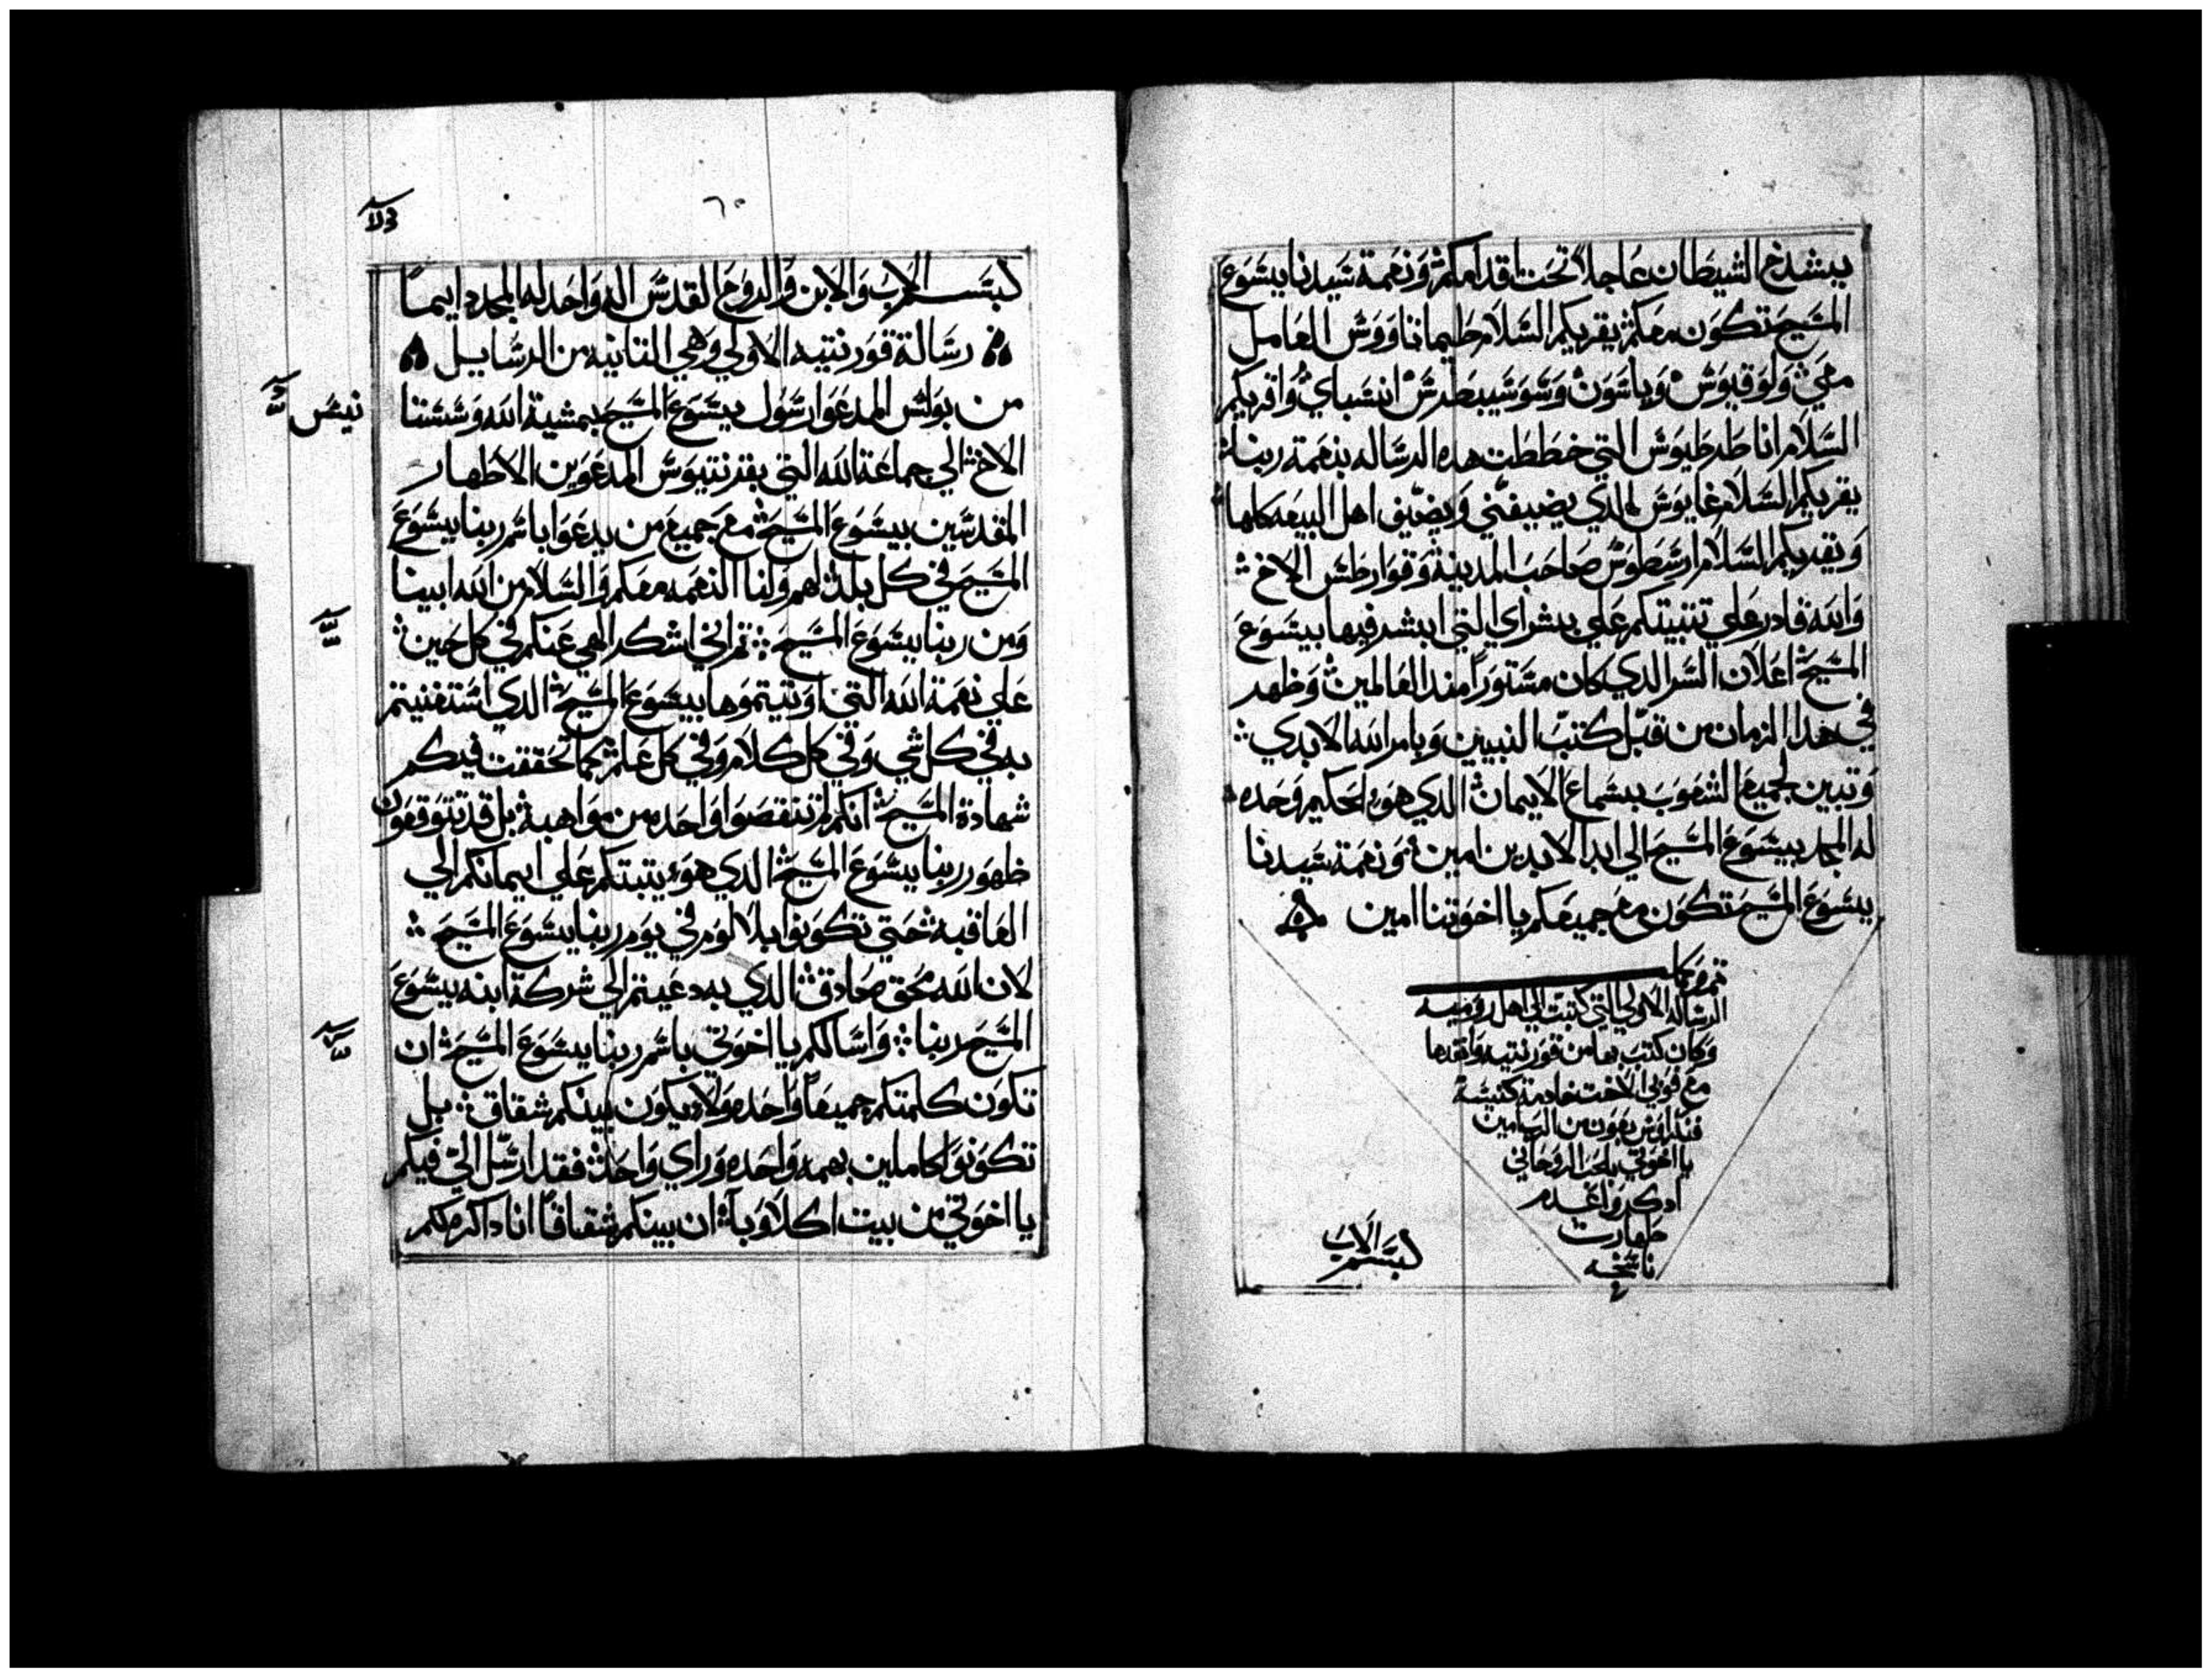 يشدخ الشيطان عاجلاً تحت اقدامكم ونعمة سيدنا يسوع
المسيح تكون معكم يقريكم السلام طيماتاووس العامل
معي ولوقيوس وياسون وسوسيبطرس انسباي واقريكم
السلام انا طرطيوس التي خططت هده الرساله بنعمة ربنا
يقريكم السلام غايوس الدي يضيفني ويضيف اهل البيعه كلها
ويقريكم السلام ارسطوس صاحب المدينة وقوارطس الاخ
والله قادر علي تتبيتكم علي بشراي التي ابشر فيها بيسوع
المسيح اعلان السر الدي كان مستوراً مند العالمين وظهر
في هدا الزمان من قبل كتب النبيين وبامر الله الابدي
وتبين لجميع الشعوب بسماع الايمان الدي هو الحكيم وحده
له المجد بيسوع المسيح الي ابد الابدين امين ونعمة سيدنا
يسوع المسيح تكون مع جميعكم يا اخوتنا امين
الرساله الاولي التي كتبت الي اهل روميه
وكان كتب بها من قورنتيه وانفدها
مع فوبي الاخت خادمة كنيسة
يا اخوتي بالحب الروحاني
ادكروا
ناسخه
بسم الاب
٦٠
بسم الاب والابن والروح القدس اله واحد له المجد دايماً
رسالة قورنتيه الاولي وهي التانيه من الرسايل
من بولس المدعوا رسول يسوع المسيح بمشية الله وسستنا
الاخ الي جماعة الله التي بقرنتيوس المدعوين الاطهار
المقدسين بيسوع المسيح مع جميع من يدعوا باسم ربنا يسوع
المسيح في كل بلد لهم ولنا النعمه معكم والسلام من الله ابينا
ومن ربنا يسوع المسيح تم اني اشكر الهي عنكم في كل حين
علي نعمة الله التي اوتيتموها بيسوع المسيح الدي استغنيتم
به في كل شي وفي كل كلام وفي كل علم كما تحققت فيكم
شهادة المسيح انكم لم تنقصوا واحده من مواهبه بل قد تتوقعون
ظهور ربنا يسوع المسيح الدي هو يتبتكم علي ايمانكم الي
العاقبه حتي تكونوا بلا لوم في يوم ربنا يسوع المسيح
لان الله محق صادق الدي به دعيتم الي شركة ابنه يسوع
المسيح ربنا واسالكم يا اخوتي باسم ربنا يسوع المسيح ان
تكون كلمتكم جميعاً واحده ولا يكون بينكم شقاق بل
تكونوا كاملين بهمه واحده وراي واحد فقد ارسل الي فيكم
يا اخوتي من بيت اكلاوبا ان بينكم شقاقاً انا داكر لكم